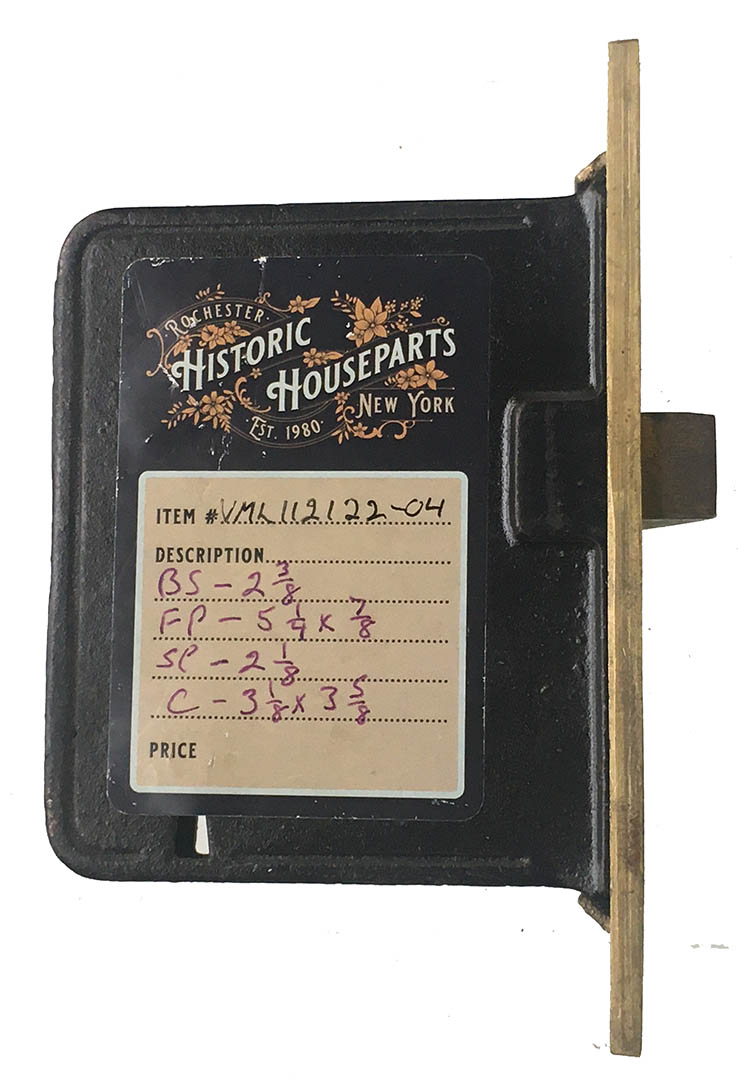 ROCHESTER
HISTORIC
HOUSEPARTS
NEW YORK
EST. 1980
ITEM # VML112122-04
DESCRIPTION
BS - 2 3/8
FP - 5 1/4 x 7/8
SP - 2 1/8
C - 3 1/8 x 3 5/8
PRICE